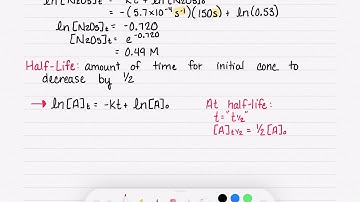 ln[N₂O₅]t = -kt + ln[N₂O₅]₀
= -(5.7×10⁻⁴ s⁻¹)(150s) + ln(0.53)
ln[N₂O₅]t = -0.720
[N₂O₅]t = e^-0.720
= 0.49 M
Half-Life: amount of time for initial conc to
decrease by 1/2
→ ln[A]t = -kt + ln[A]₀
At half-life:
t = "t½"
[A]t½ = ½[A]₀